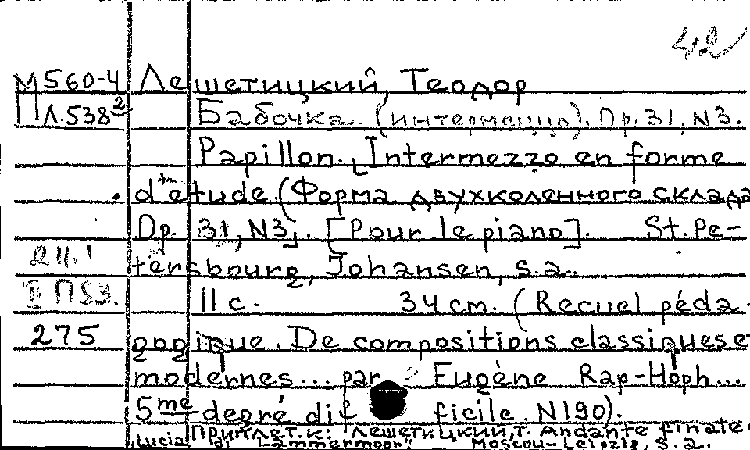 42
М560-4 Лешетицкий, Теодор
Пл.538² Бабочка. (интермеццо). Op.31, N3.
Papillon. [Intermezzo en forme
d'etude (Форма двухколенного склада
Op. 31, N3]. [Pour le piano]. St.Pe-
tersbourg, Johansen, s.a.
II П53. 11 с. 34 cm. (Recuel péda-
275 gogique. De compositions classiques e
modernes... par Eugène Rap-Hoph...
5me degré dif ficile. N190).
Приплет. к: Лешетицкий, Т. Andante finale
Lucia di Lammermoor. Moscou-Leipzig, s.a.